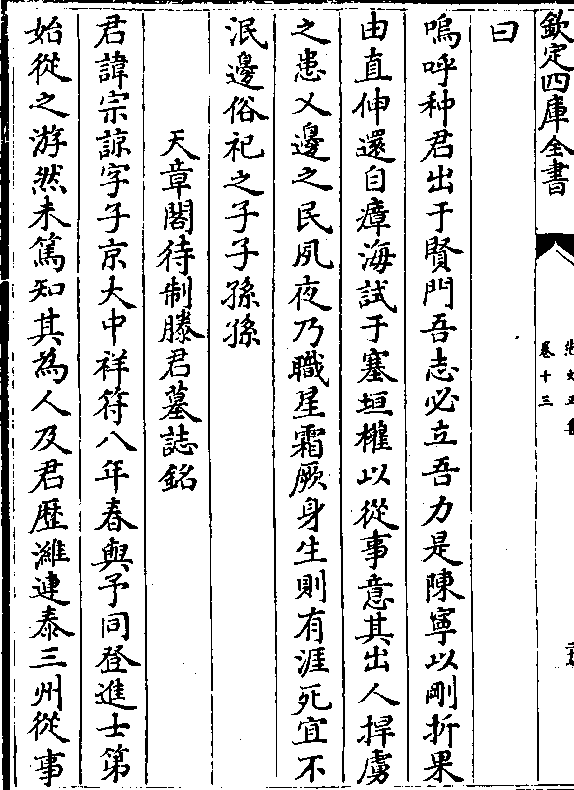 欽定四庫全書
卷十三
曰
嗚呼种君出于賢門吾志必立吾力是陳寧以剛折果
由直伸還自瘴海試于塞垣權以從事意其出人捍虜
之患乂邊之民夙夜乃職星霜厥身生則有涯死宜不
泯邊俗祀之子子孫孫
天章閣待制滕君墓誌銘
君諱宗諒字子京大中祥符八年春與予同登進士第
始從之游然未篤知其為人及君歷濰連泰三州從事